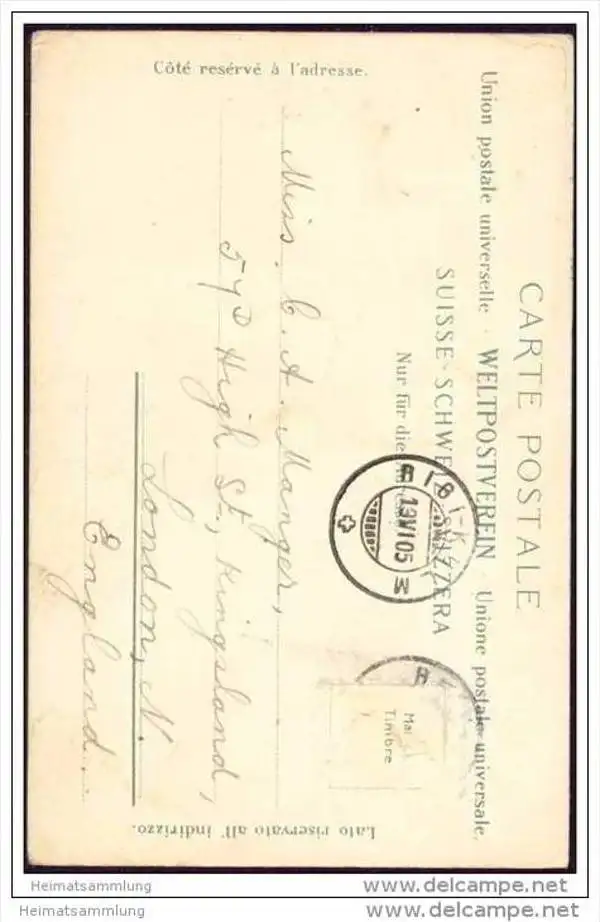 CARTE POSTALE
Union postale universelle · WELTPOSTVEREIN · Unione postale universale.
SUISSE · SCHWEIZ · SVIZZERA
Nur für die
Côté resérvé à l'adresse.
Lato riservato all' indirizzo.
13 VI 05
Timbre
Miss. C. A. Manger,
57D High St., Kingsland,
London, N.
England.
Heimatsammlung
Heimatsammlung
www.delcampe.net
www.delcampe.net